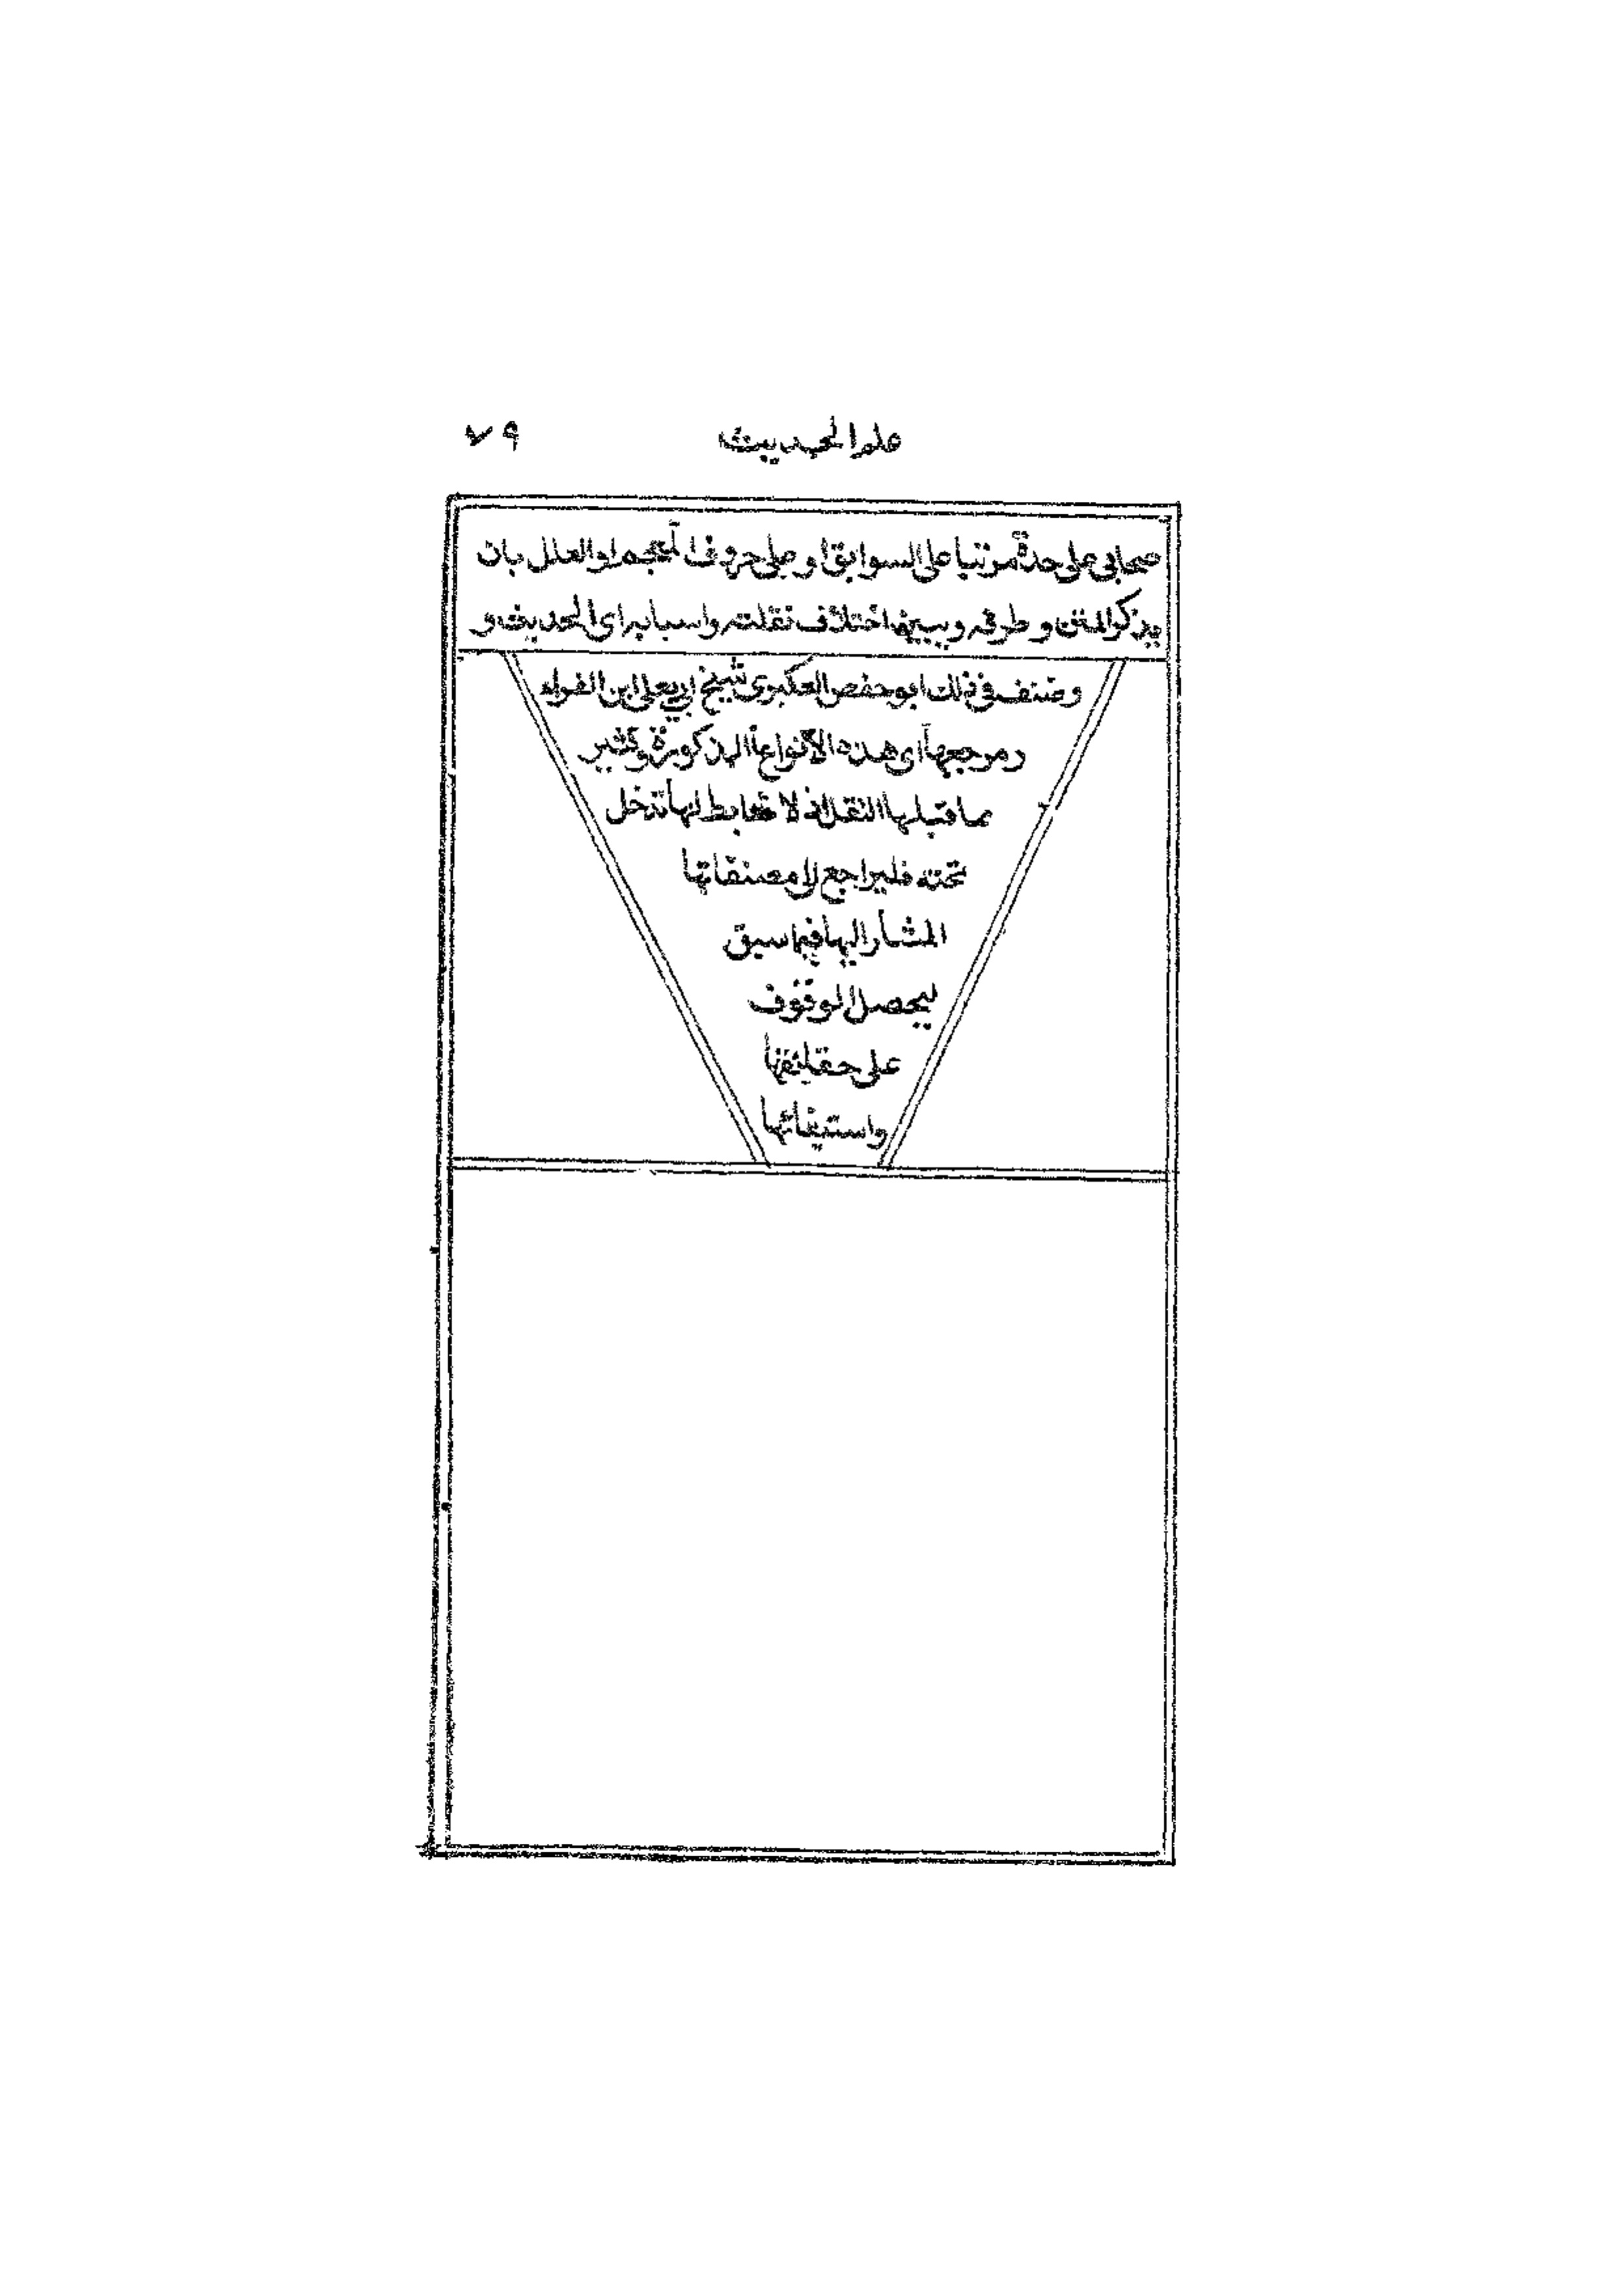 علم الحديث ٧٩
صحابي على حدة مرتبا على السوابق او على حروف المعجم او العلل بان
يذكر المتن و طرقه و يبين اختلاف نقلته و اسبابه اى الحديث و
وصنف في ذلك ابو حفص العكبري شيخ ابي يعلى ابن الفراء
ومرجعها اى هذه الانواع المذكورة وكثير
مما قبلها النقل اذ لا ضابط لها تدخل
تحته فليراجع لها مصنفاتها
المشار اليها فيما سبق
ليحصل الوقوف
على حقايقها
واستيفائها